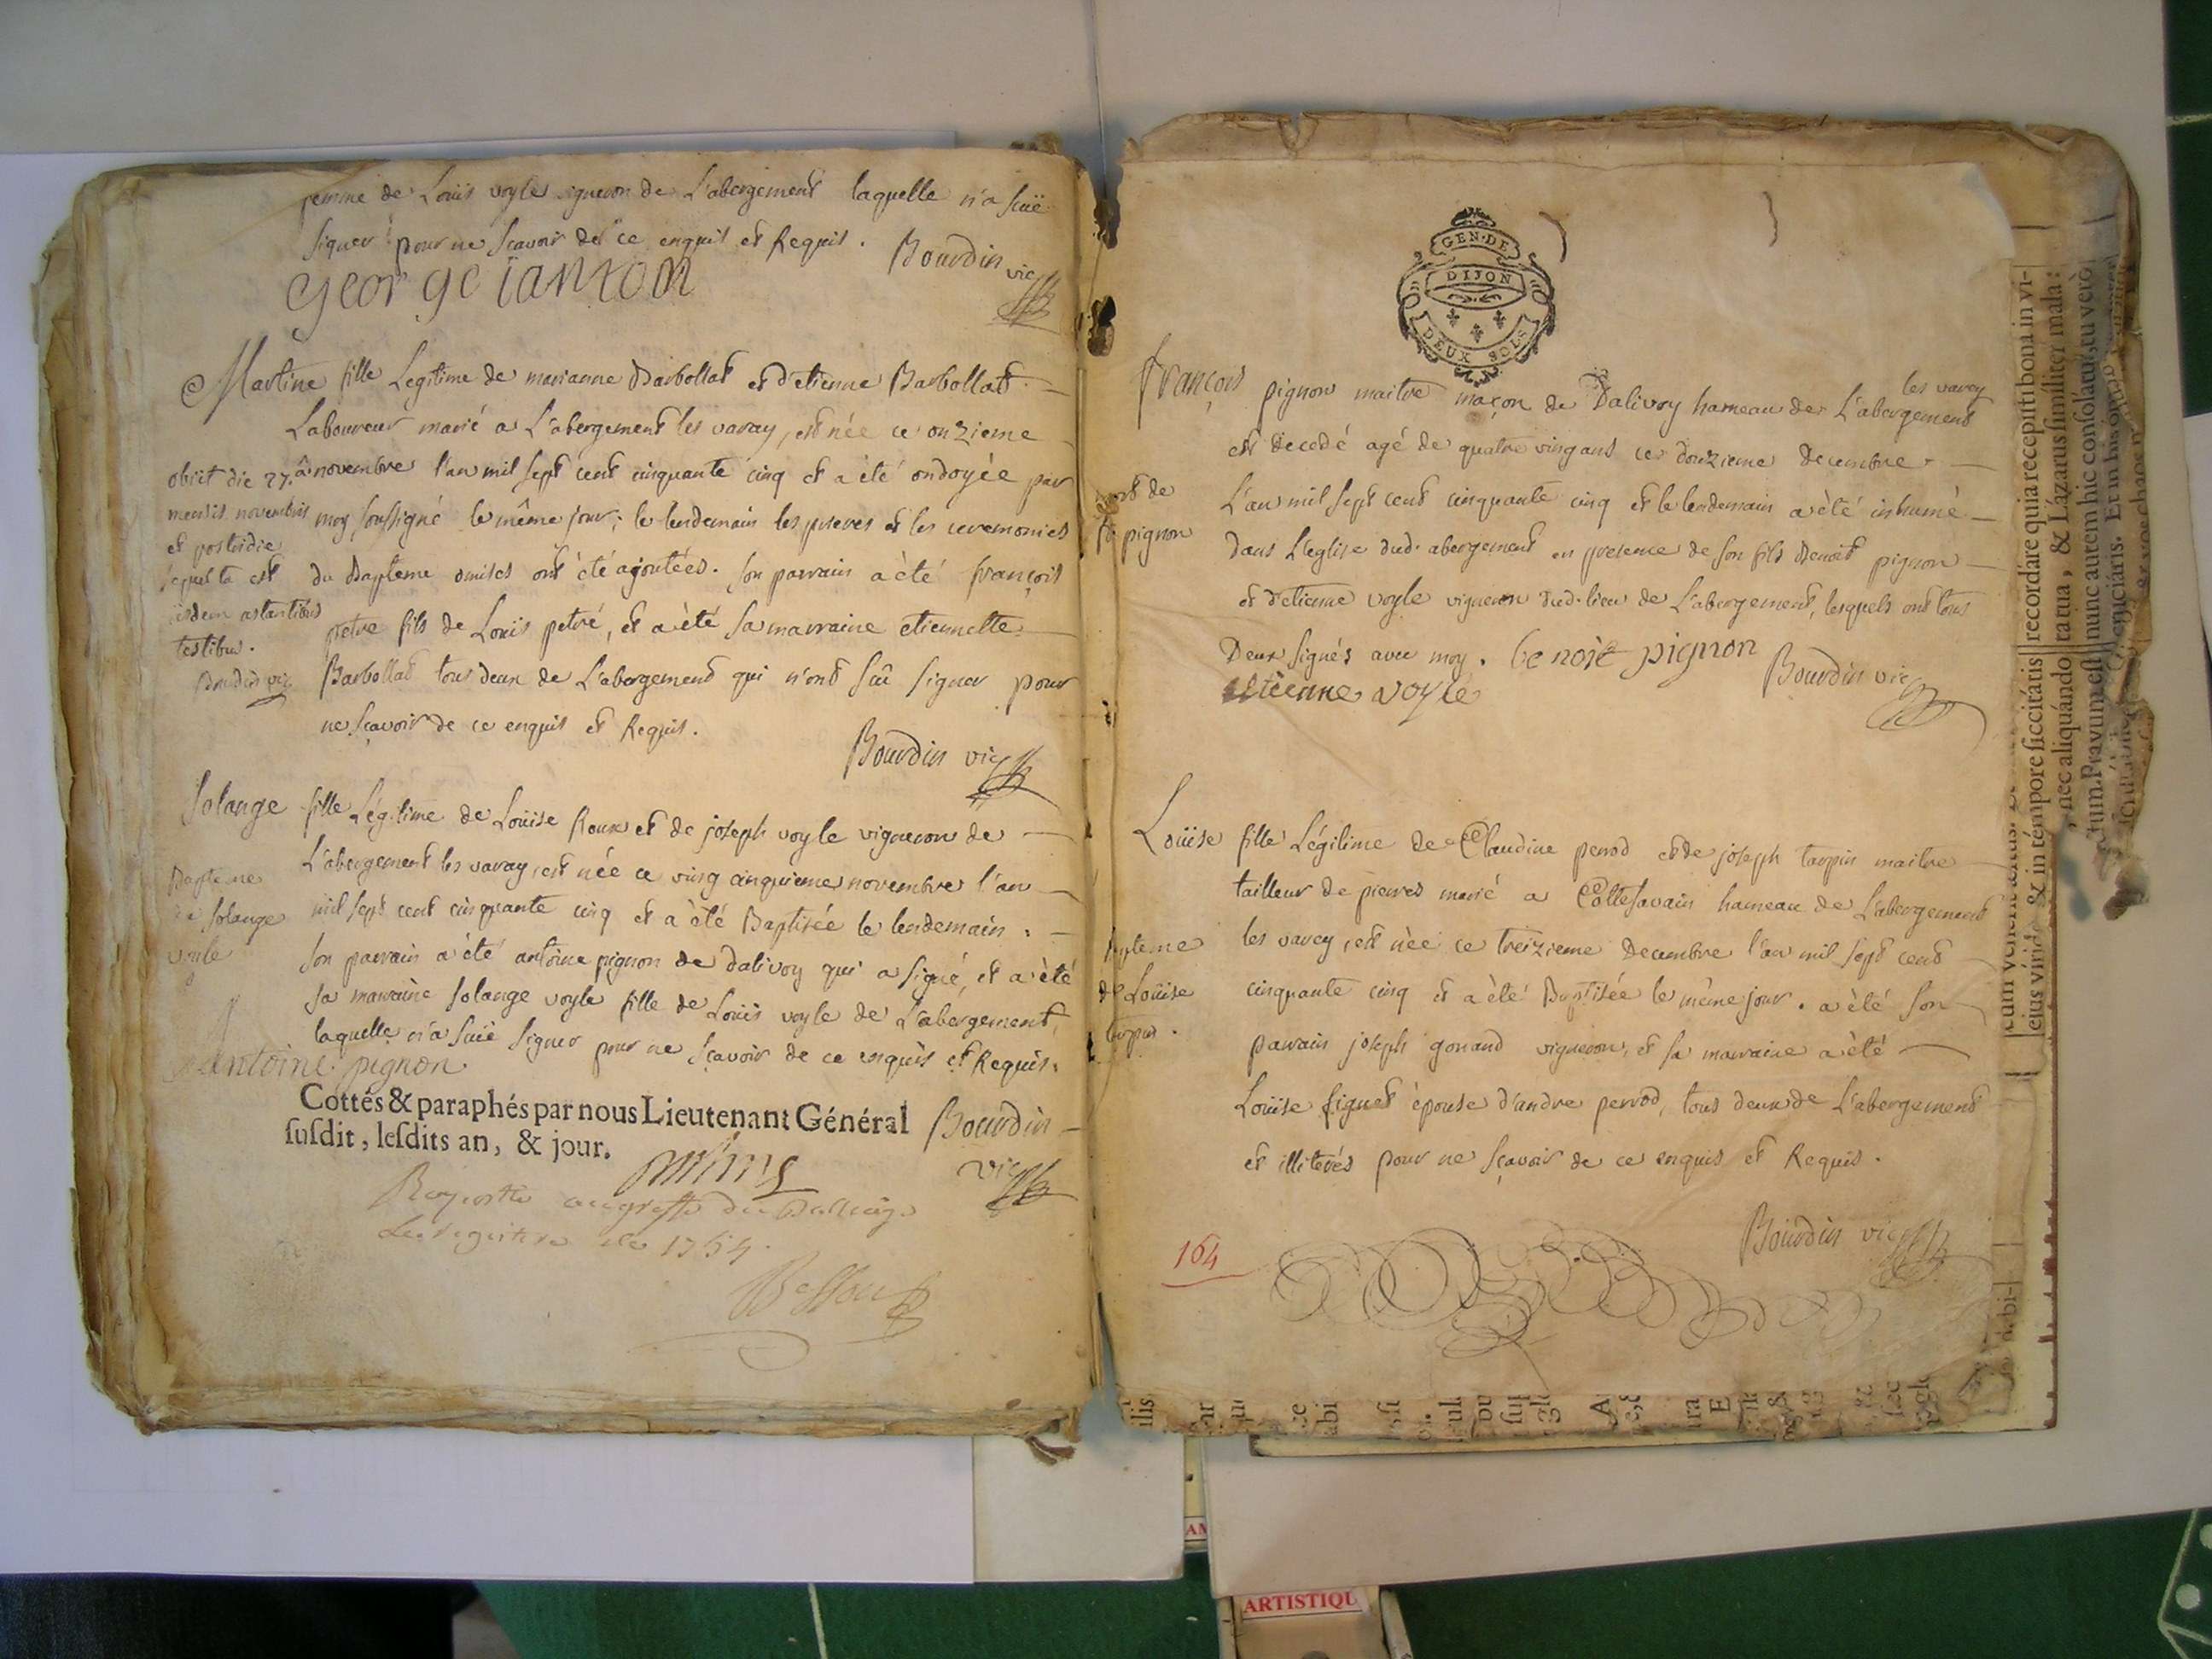 femme de Loüis voyle vigneron de L'abergement laquelle n'a sçuë
signer pour ne sçavoir de ce enquis et Requis. Bourdin vic
george ianton
Martine fille Legitime de marianne Barbollat et d'etienne Barbollat
Laboureur marié a L'abergement les varay, est née ce onzieme
novembre l'an mil sept cent cinquante cinq et a été ondoyée par
moy soussigné le même jour; le lendemain les prieres et les ceremonies
du Bapteme omises ont été ajoutées. son parrain a été françois
petre fils de Loüis petré, et a été sa marraine etiennette
Barbollat tous deux de L'abergement qui n'ont sçû signer pour
ne sçavoir de ce enquis et Requis.
Bourdin vic
obiit die 27.a
mensis novembris
et postridie
sepulta est
iisdem astantibus
testibus.
Bourdin vic
Solange fille Légitime de Loüise Roux et de joseph voyle vigneron de
L'abergement les varay est née ce ving cinquieme novembre l'an
mil sept cent cinquante cinq et a été Baptisée le lendemain.
son parrain a été antoine pignon de dalivoy qui a signé, et a été
sa marraine solange voyle fille de Loüis voyle de L'abergement,
laquelle n'a sçuë signer pour ne sçavoir de ce enquis et Requis.
Bapteme
de solange
voyle
Antoine pignon
Cottés & paraphés par nous Lieutenant Général
susdit, lesdits an, & jour.
Bourdin
vic
Raporté au greffe du Balliage
Le registre de 1754
GEN·DE
DIJON
DEUX SOLS
françois pignon maitre maçon de Dalivoy hameau de L'abergement
les varey
est decedé agé de quatre vingt ans ce douzieme Decembre
L'an mil sept cent cinquante cinq et le lendemain a été inhumé
dans L'eglise dud. abergement en presence de son fils Benoit pignon
et d'etienne voyle vigneron dud. lieu de L'abergement, lesquels ont tous
Deux signés avec moy. benoit pignon
Bourdin vic
etienne voyle
mort de
fr. pignon
Loüise fille Légitime de Claudine perrod et de joseph tarpin maitre
tailleur de pierres marié a Cottesavain hameau de L'abergement
les varey, est née ce treizieme Decembre l'an mil sept cent
cinquante cinq et a été Baptisée le même jour. a été son
parrain joseph gonand vigneron, et sa marraine a été
Loüise figuet épouse d'andre perrod, tous deux de L'abergement
et illiterés pour ne sçavoir de ce enquis et Requis.
Bapteme
de Loüise
tarpin.
Bourdin vic
164
recordare quia recepisti bona in vi-
ta tua, & Lázarus similiter mala:
nunc autem hic consolatur, tu verò
ejus víride & in témpore siccitátis
nec aliquándo
ARTISTIQU